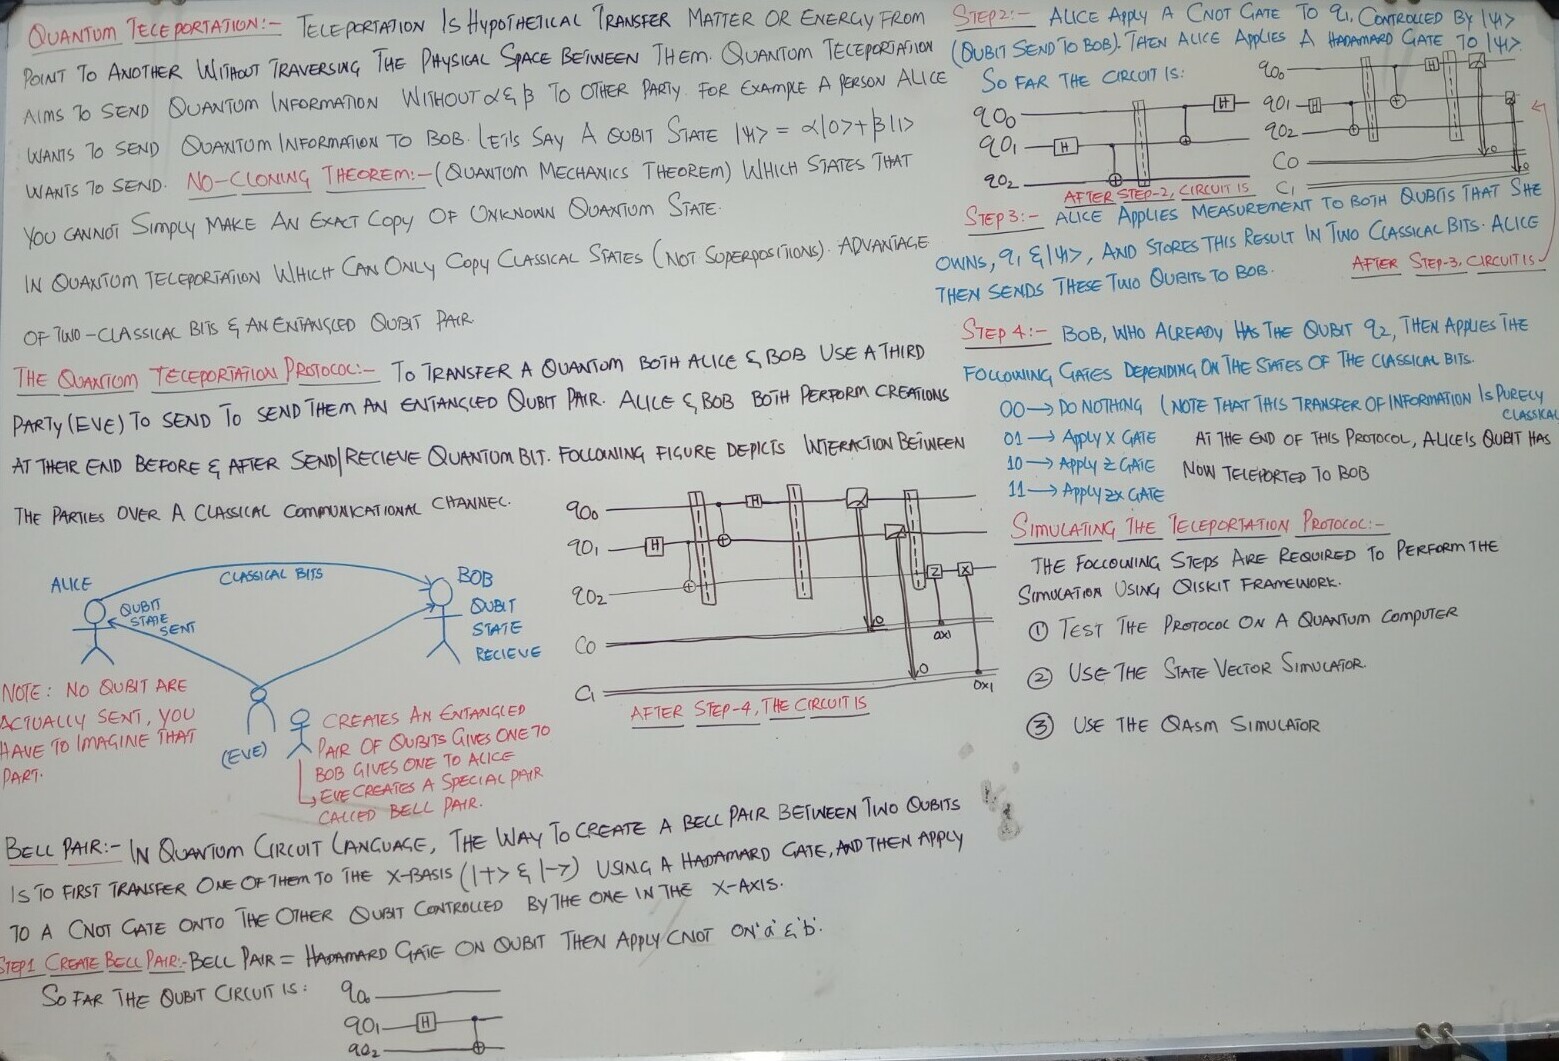 QUANTUM TELEPORTATION:- TELEPORTATION IS HYPOTHETICAL TRANSFER MATTER OR ENERGY FROM
POINT TO ANOTHER WITHOUT TRAVERSING THE PHYSICAL SPACE BETWEEN THEM. QUANTUM TELEPORTATION
AIMS TO SEND QUANTUM INFORMATION WITHOUT α & β TO OTHER PARTY. FOR EXAMPLE A PERSON ALICE
WANTS TO SEND QUANTUM INFORMATION TO BOB. LET'S SAY A QUBIT STATE |ψ> = α|0>+β|1>
WANTS TO SEND. NO-CLONING THEOREM:- (QUANTUM MECHANICS THEOREM) WHICH STATES THAT
YOU CANNOT SIMPLY MAKE AN EXACT COPY OF UNKNOWN QUANTUM STATE.
IN QUANTUM TELEPORTATION WHICH CAN ONLY COPY CLASSICAL STATES (NOT SUPERPOSITIONS). ADVANTAGE
OF TWO-CLASSICAL BITS & AN ENTANGLED QUBIT PAIR
THE QUANTUM TELEPORTATION PROTOCOL:- TO TRANSFER A QUANTUM BOTH ALICE & BOB USE A THIRD
PARTY (EVE) TO SEND TO SEND THEM AN ENTANGLED QUBIT PAIR. ALICE & BOB BOTH PERFORM CREATIONS
AT THEIR END BEFORE & AFTER SEND/RECIEVE QUANTUM BIT. FOLLOWING FIGURE DEPICTS INTERACTION BETWEEN
THE PARTIES OVER A CLASSICAL COMMUNICATIONAL CHANNEL.
ALICE
CLASSICAL BITS
BOB
QUBIT
STATE
SENT
QUBIT
STATE
RECIEVE
NOTE: NO QUBIT ARE
ACTUALLY SENT, YOU
HAVE TO IMAGINE THAT
PART.
(EVE)
CREATES AN ENTANGLED
PAIR OF QUBITS GIVES ONE TO
BOB GIVES ONE TO ALICE
EVE CREATES A SPECIAL PAIR
CALLED BELL PAIR.
q00
H
q01
H
q02
Z
X
C0
0
0x1
C1
0
0x1
AFTER STEP-4, THE CIRCUIT IS
BELL PAIR:- IN QUANTUM CIRCUIT LANGUAGE, THE WAY TO CREATE A BELL PAIR BETWEEN TWO QUBITS
IS TO FIRST TRANSFER ONE OF THEM TO THE X-BASIS (|+> & |->) USING A HADAMARD GATE, AND THEN APPLY
TO A CNOT GATE ONTO THE OTHER QUBIT CONTROLLED BY THE ONE IN THE X-AXIS.
STEP1 CREATE BELL PAIR:- BELL PAIR = HADAMARD GATE ON QUBIT THEN APPLY CNOT ON 'a' & 'b'.
SO FAR THE QUBIT CIRCUIT IS:
q00
q01
H
q02
STEP2:- ALICE APPLY A CNOT GATE TO q1, CONTROLLED BY |ψ>
(QUBIT SEND TO BOB). THEN ALICE APPLIES A HADAMARD GATE TO |ψ>.
SO FAR THE CIRCUIT IS:
q00
H
q01
H
q02
AFTER STEP-2, CIRCUIT IS
q00
H
q01
H
q02
C0
0
C1
0
STEP3:- ALICE APPLIES MEASUREMENT TO BOTH QUBITS THAT SHE
OWNS, q1 & |ψ>, AND STORES THIS RESULT IN TWO CLASSICAL BITS. ALICE
THEN SENDS THESE TWO QUBITS TO BOB.
AFTER STEP-3, CIRCUIT IS
STEP 4:- BOB, WHO ALREADY HAS THE QUBIT q2, THEN APPLIES THE
FOLLOWING GATES DEPENDING ON THE STATES OF THE CLASSICAL BITS.
00 → DO NOTHING (NOTE THAT THIS TRANSFER OF INFORMATION IS PURELY
CLASSICAL
01 → APPLY X GATE
10 → APPLY Z GATE
11 → APPLY ZX GATE
AT THE END OF THIS PROTOCOL, ALICE'S QUBIT HAS
NOW TELEPORTED TO BOB
SIMULATING THE TELEPORTATION PROTOCOL:-
THE FOLLOWING STEPS ARE REQUIRED TO PERFORM THE
SIMULATION USING QISKIT FRAMEWORK.
① TEST THE PROTOCOL ON A QUANTUM COMPUTER
② USE THE STATE VECTOR SIMULATOR.
③ USE THE QASM SIMULATOR